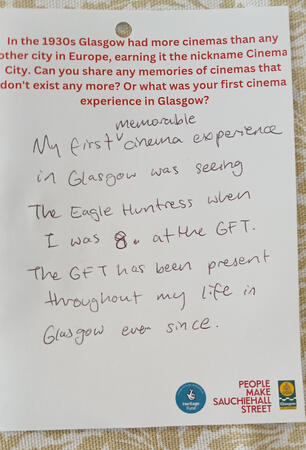 In the 1930s Glasgow had more cinemas than any
other city in Europe, earning it the nickname Cinema
City. Can you share any memories of cinemas that
don't exist any more? Or what was your first cinema
experience in Glasgow?
memorable
My first cinema experience
in Glasgow was seeing
The Eagle Huntress when
I was 8. at the GFT.
The GFT has been present
throughout my life in
Glasgow ever since.
Heritage
Fund
PEOPLE
MAKE
SAUCHIEHALL
STREET